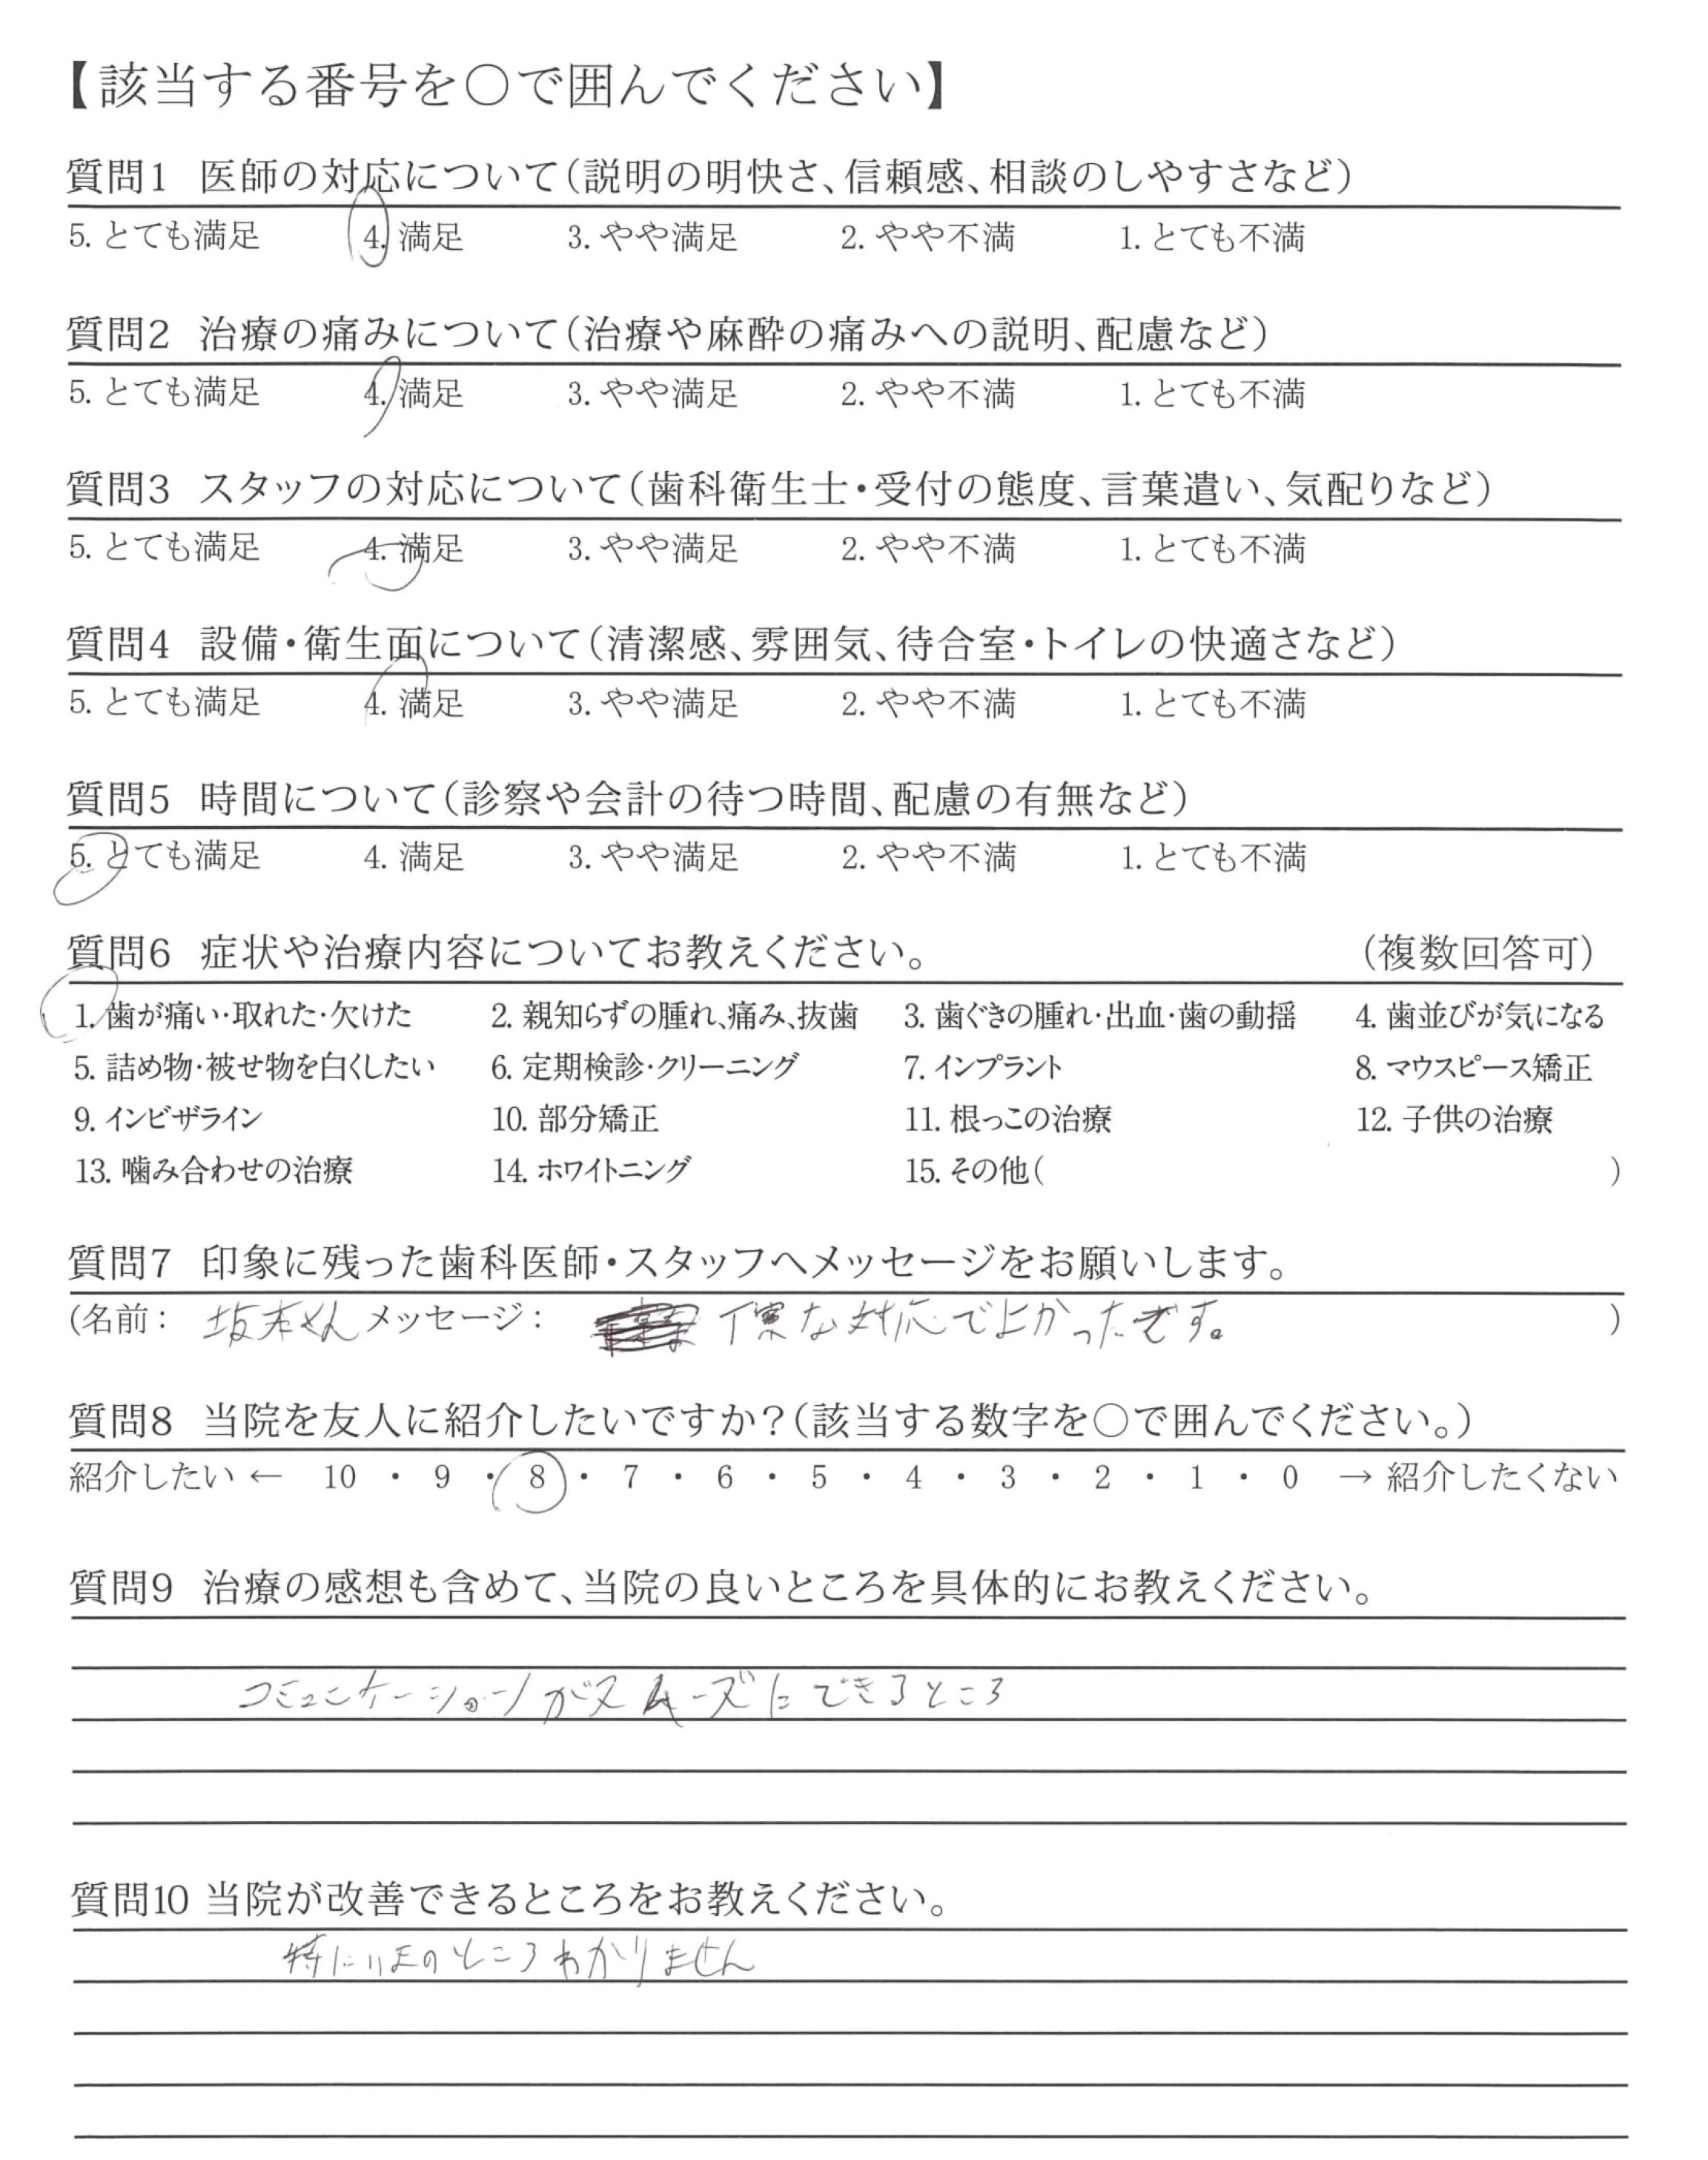 【該当する番号を〇で囲んでください】
質問1 医師の対応について(説明の明快さ、信頼感、相談のしやすさなど)
5. とても満足 4. 満足 3. やや満足 2. やや不満 1. とても不満
質問2 治療の痛みについて(治療や麻酔の痛みへの説明、配慮など)
5. とても満足 4. 満足 3. やや満足 2. やや不満 1. とても不満
質問3 スタッフの対応について(歯科衛生士・受付の態度、言葉遣い、気配りなど)
5. とても満足 4. 満足 3. やや満足 2. やや不満 1. とても不満
質問4 設備・衛生面について(清潔感、雰囲気、待合室・トイレの快適さなど)
5. とても満足 4. 満足 3. やや満足 2. やや不満 1. とても不満
質問5 時間について(診察や会計の待つ時間、配慮の有無など)
5. とても満足 4. 満足 3. やや満足 2. やや不満 1. とても不満
質問6 症状や治療内容についてお教えください。 (複数回答可)
1. 歯が痛い・取れた・欠けた 2. 親知らずの腫れ、痛み、抜歯 3. 歯ぐきの腫れ・出血・歯の動揺 4. 歯並びが気になる
5. 詰め物・被せ物を白くしたい 6. 定期検診・クリーニング 7. インプラント 8. マウスピース矯正
9. インビザライン 10. 部分矯正 11. 根っこの治療 12. 子供の治療
13. 噛み合わせの治療 14. ホワイトニング 15. その他( )
質問7 印象に残った歯科医師・スタッフへメッセージをお願いします。
(名前: 坂本さん メッセージ: な対応でよかったです。 )
質問8 当院を友人に紹介したいですか?(該当する数字を〇で囲んでください。)
紹介したい ← 10 ・ 9 ・ 8 ・ 7 ・ 6 ・ 5 ・ 4 ・ 3 ・ 2 ・ 1 ・ 0 → 紹介したくない
質問9 治療の感想も含めて、当院の良いところを具体的にお教えください。
コミュニケーションがスムーズにできるところ
質問10 当院が改善できるところをお教えください。
特にいまのところわかりません